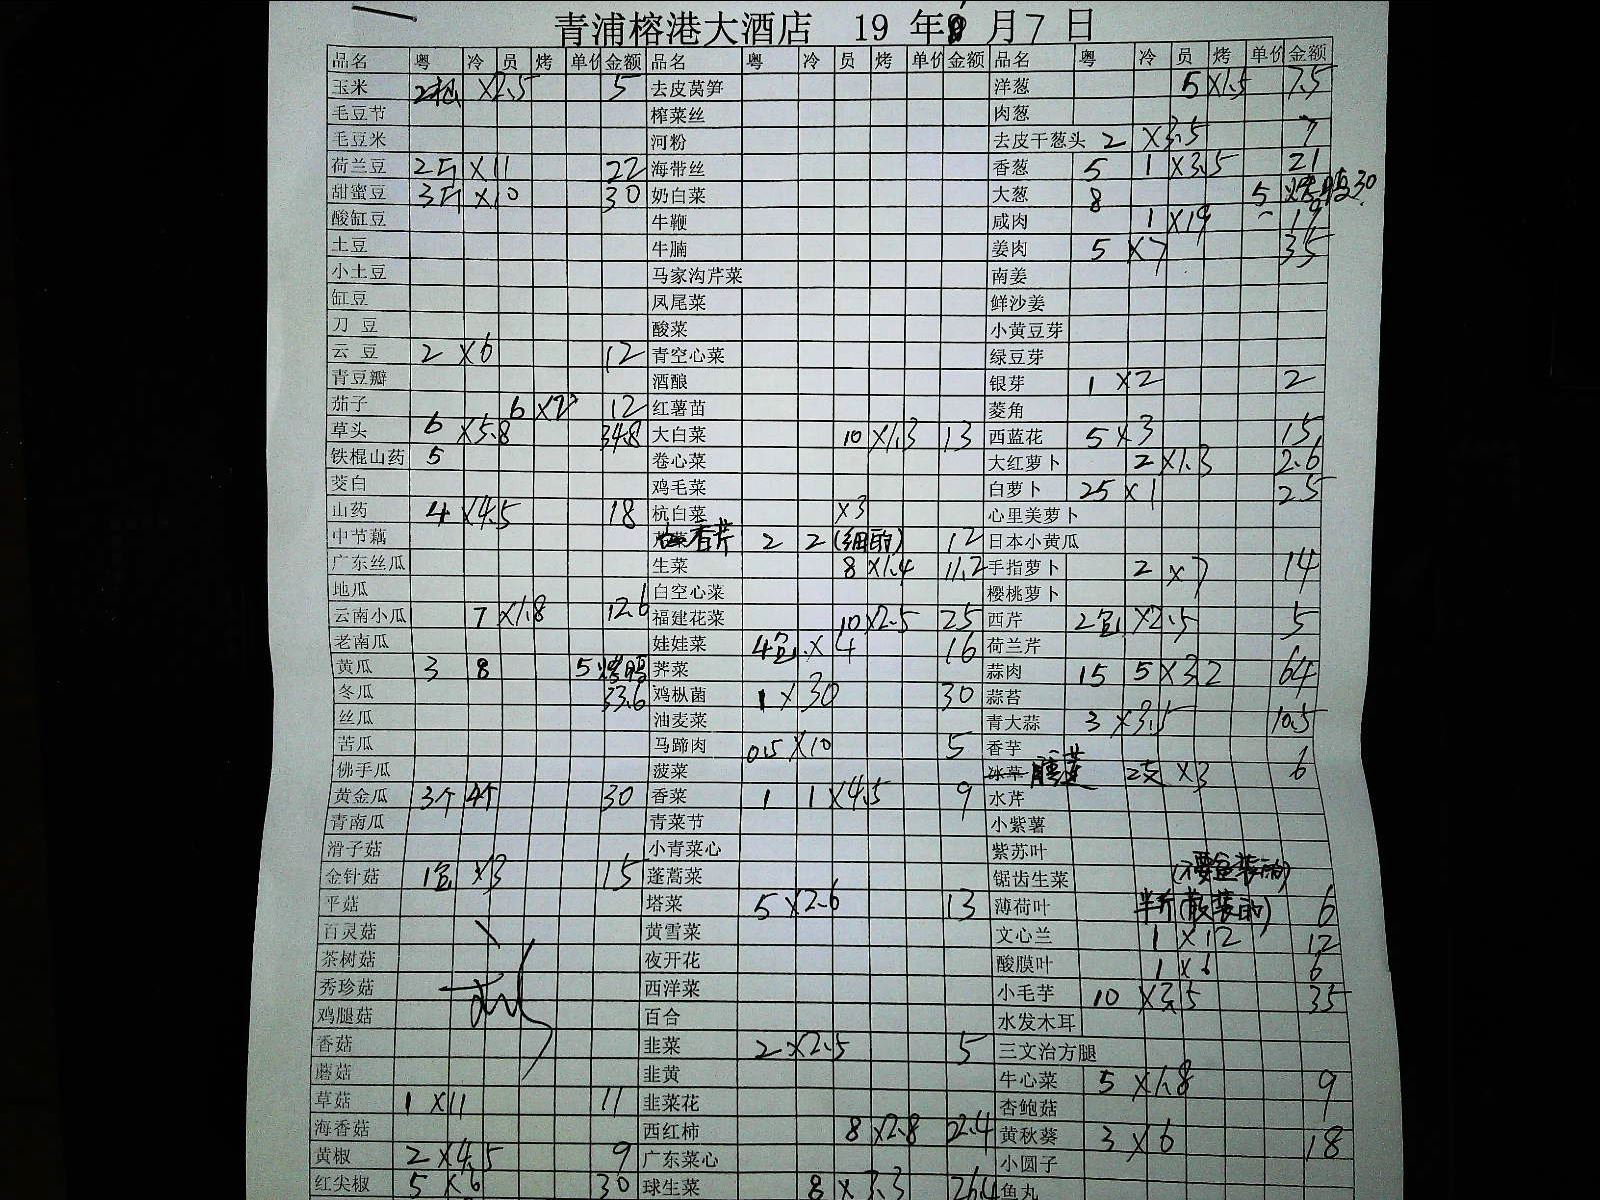 青浦榕港大酒店 19 年 月 7 日
品名 粤 冷 员 烤 单价 金额 品名 粤 冷 员 烤 单价 金额 品名 粤 冷 员 烤 单价 金额
玉米 ×2.5 5 去皮莴笋 洋葱 5 ×1.5 7.5
毛豆节 榨菜丝 肉葱
毛豆米 河粉 去皮干葱头 2 ×3.5 7
荷兰豆 2斤 ×11 22 海带丝 香葱 5 1 ×3.5 21
甜蜜豆 3斤 ×10 30 奶白菜 大葱 8 5 烤鸭 30
酸缸豆 牛鞭 咸肉 1 ×19 19
土豆 牛腩 姜肉 5 ×7 35
小土豆 马家沟芹菜 南姜
缸豆 凤尾菜 鲜沙姜
刀 豆 酸菜 小黄豆芽
云 豆 2 ×6 12 青空心菜 绿豆芽
青豆瓣 酒酿 银芽 1 ×2 2
茄子 6 ×2 12 红薯苗 菱角
草头 6 ×5.8 34.8 大白菜 10 ×1.3 13 西蓝花 5 ×3 15
铁棍山药 5 卷心菜 大红萝卜 2 ×1.3 2.6
茭白 鸡毛菜 白萝卜 25 ×1 25
山药 4 ×4.5 18 杭白菜 ×3 心里美萝卜
中节藕 香芹 2 2 (细的) 12 日本小黄瓜
广东丝瓜 生菜 8 ×1.4 11.2 手指萝卜 2 ×7 14
地瓜 白空心菜 樱桃萝卜
云南小瓜 7 ×1.8 12.6 福建花菜 10 ×2.5 25 西芹 2包 ×2.5 5
老南瓜 娃娃菜 4包 × 4 16 荷兰芹
黄瓜 3 8 5 烤鸭 荠菜 蒜肉 15 5 ×3.2 64
冬瓜 33.6 鸡枞菌 1 ×30 30 蒜苔
丝瓜 油麦菜 青大蒜 3 ×3.5 10.5
苦瓜 马蹄肉 0.5 ×10 5 香芋
佛手瓜 菠菜 冰草 2支 ×3 6
黄金瓜 3个 4个 30 香菜 1 1 ×4.5 9 水芹
青南瓜 青菜节 小紫薯
滑子菇 小青菜心 紫苏叶
金针菇 1包 ×3 15 蓬蒿菜 锯齿生菜 (不要包装的)
平菇 塔菜 5 ×2.6 13 薄荷叶 半斤(散装的) 6
百灵菇 黄雪菜 文心兰 1 ×12 12
茶树菇 夜开花 酸膜叶 1 ×6 6
秀珍菇 西洋菜 小毛芋 10 ×3.5 35
鸡腿菇 百合 水发木耳
香菇 韭菜 2 ×2.5 5 三文治方腿
蘑菇 韭黄 牛心菜 5 ×1.8 9
草菇 1 ×11 11 韭菜花 杏鲍菇
海香菇 西红柿 8 ×2.8 22.4 黄秋葵 3 ×6 18
黄椒 2 ×4.5 9 广东菜心 小圆子
红尖椒 5 ×6 30 球生菜 8 ×3.3 26.4 鱼丸